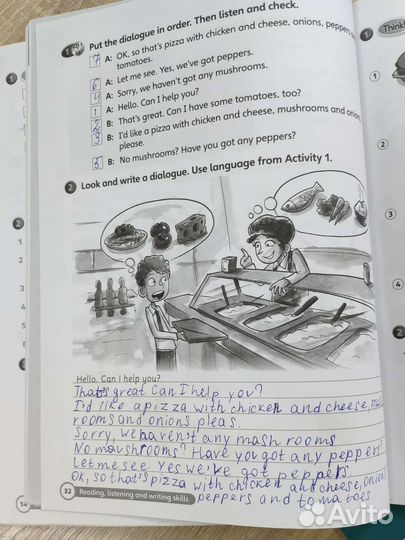 1 CD1 Put the dialogue in order. Then listen and check.
7 A: OK, so that's pizza with chicken and cheese, onions, peppers
tomatoes.
6 A: Let me see. Yes, we've got peppers.
4 A: Sorry, we haven't got any mushrooms.
1 A: Hello. Can I help you?
2 B: That's great. Can I have some tomatoes, too?
3 B: I'd like a pizza with chicken and cheese, mushrooms and onions
please.
5 B: No mushrooms? Have you got any peppers?
2 Look and write a dialogue. Use language from Activity 1.
Hello. Can I help you?
That's great Can I help you?
I'd like a pizza with chicken and cheese,
rooms and onions pleas.
Sorry, we haven't any mash rooms
No movshrooms? Have you got any peppers?
Let me see yes we've got peppers.
OK, so that's pizza with chicken and cheese, onions
peppers and tomatoes
32 Reading, listening and writing skills
1 Think!
1
2
3
4
2
2
1
2
3
4
5
Avito